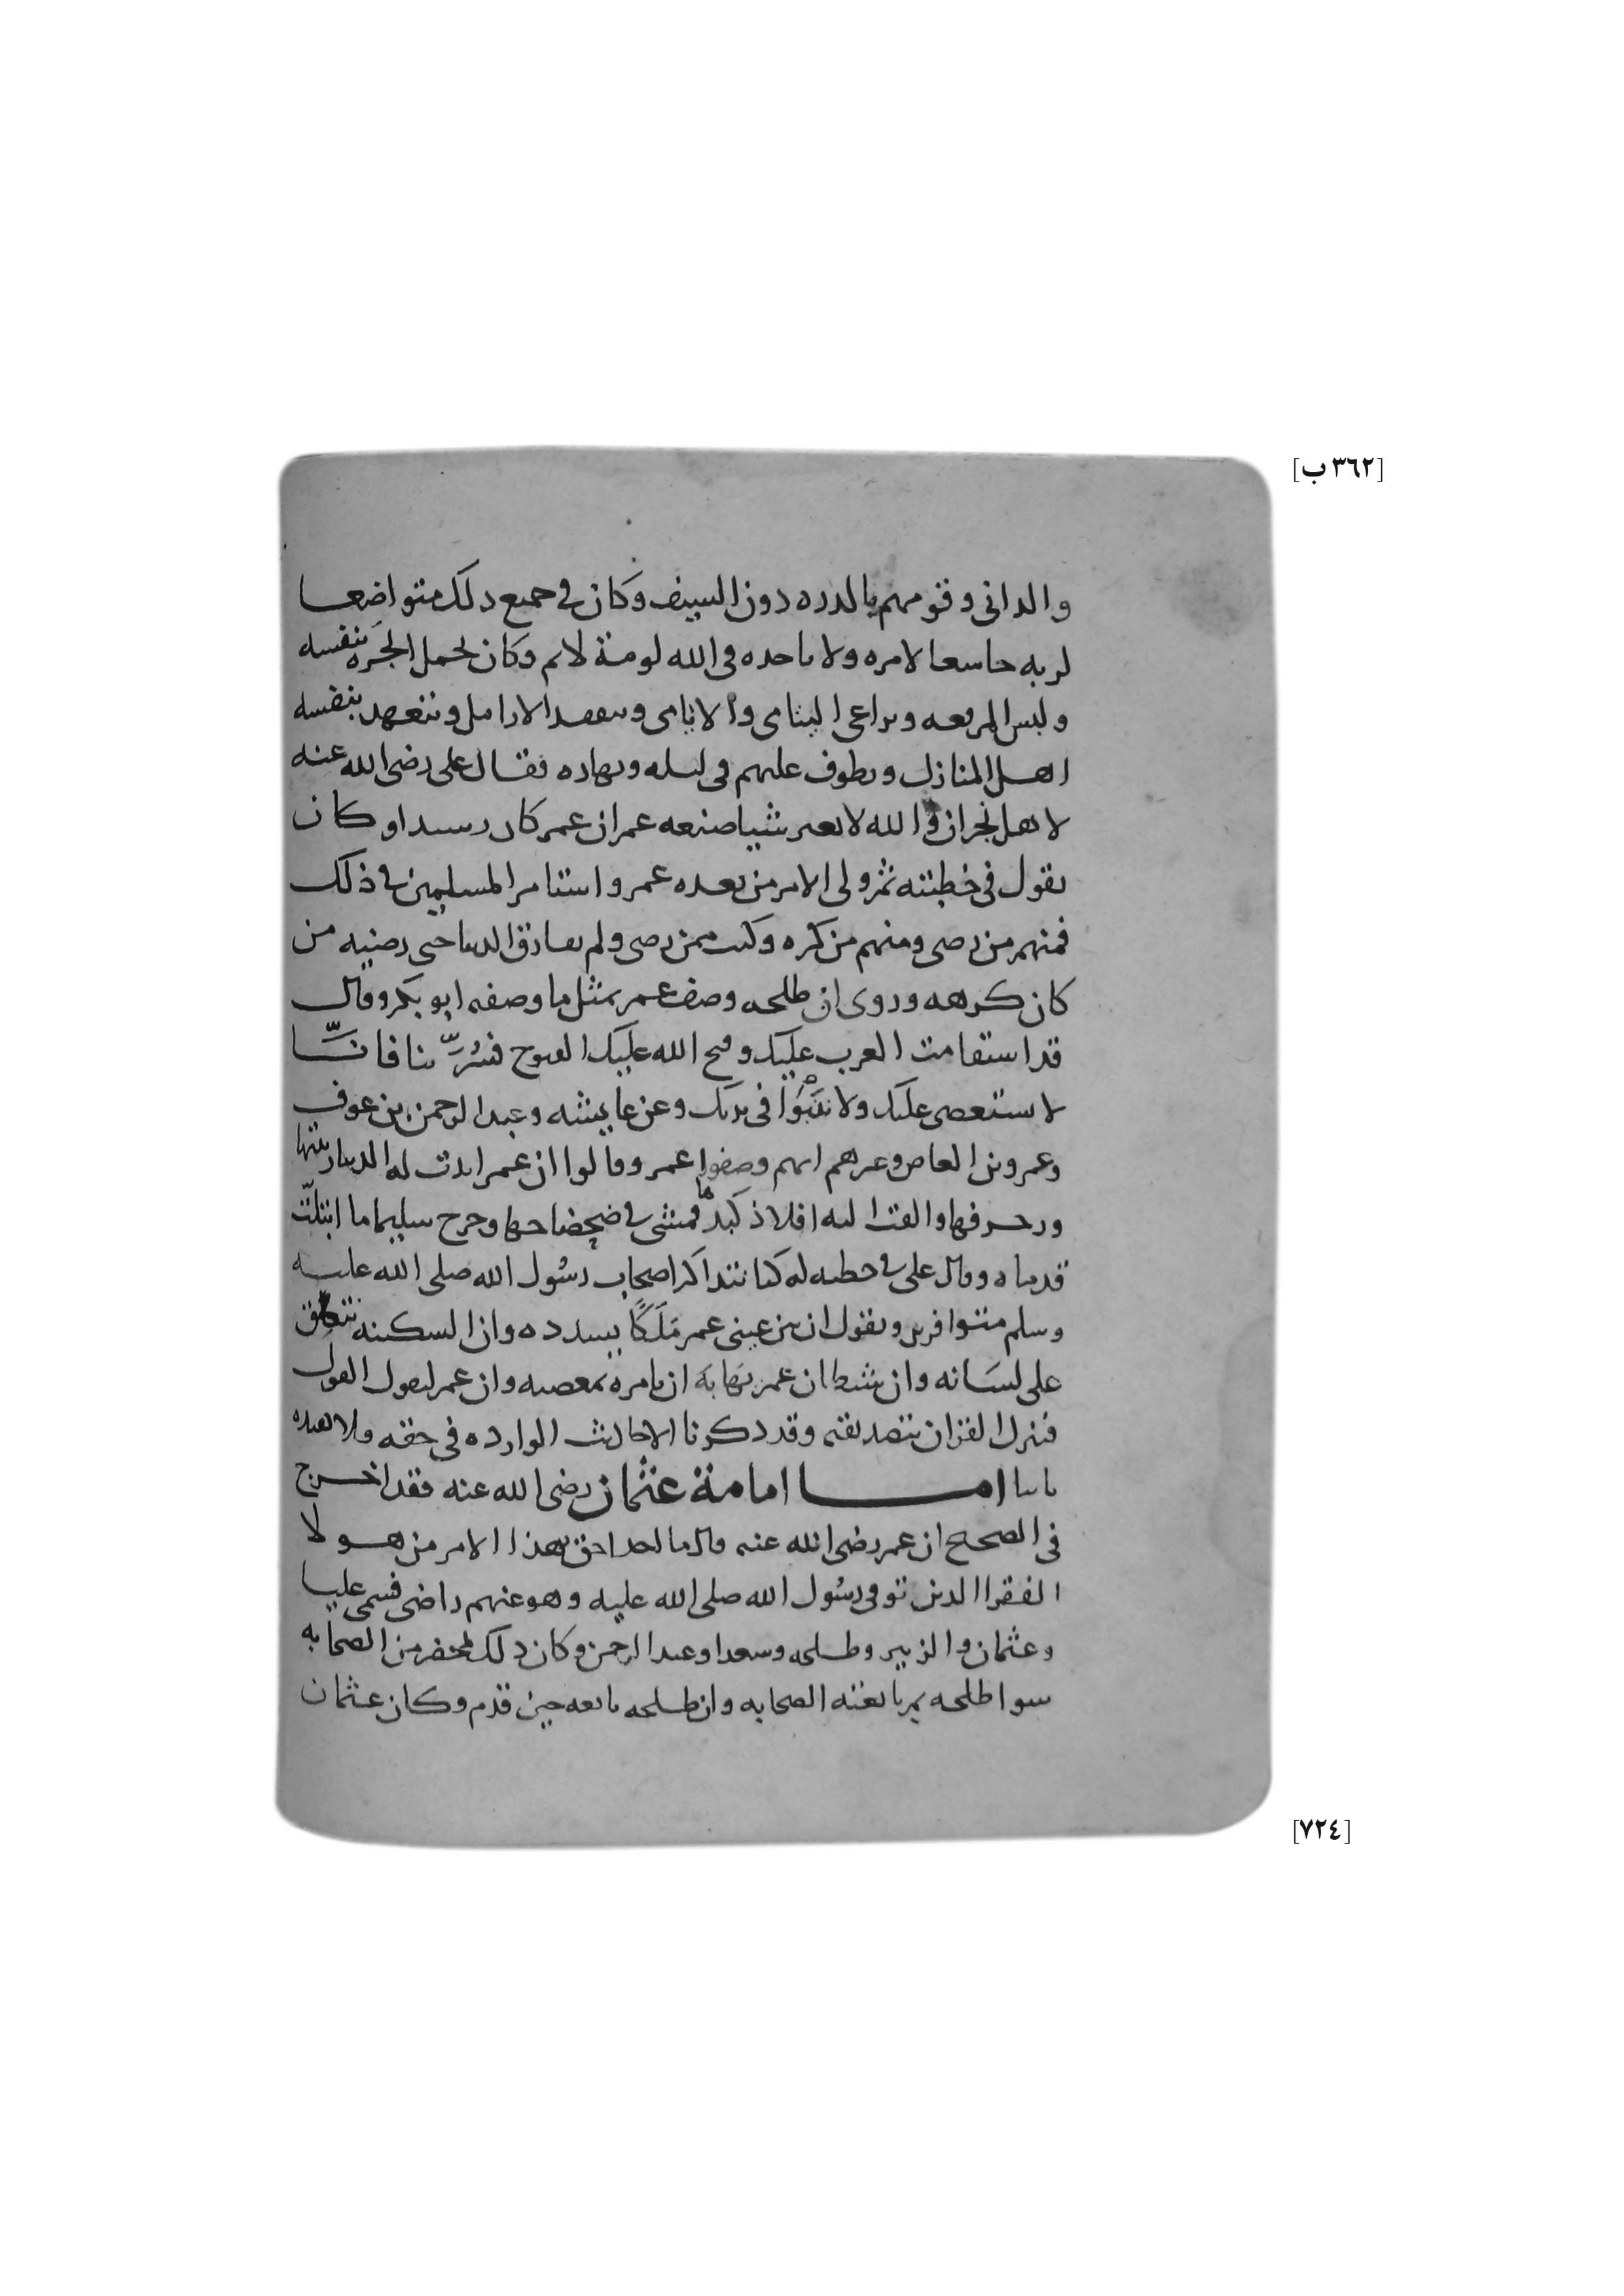 [٣٦٢ ب]
والدانى وقومهم بالدره دون السيف وكان فى جميع ذلك متواضعا
لربه خاسعا لامره ولا ياحده فى الله لومة لايم وكان يحمل الجره بنفسه
ولبس المرقعه ويراعى اليتامى والايامى ويتفقد الارامل ويتعهد بنفسه
اهل المنازل ويطوف عليهم فى ليله ونهاره فقال على رضى الله عنه
لاهل نجران والله لا نغير شيا صنعه عمر ان عمر كان رسيدا وكان
يقول فى خطبته ثم ولى الامر من بعده عمر واستامر المسلمين فى ذلك
فمنهم من رضى ومنهم من كره وكنت ممن رضى ولم يفارق الدنيا حتى رضيه من
كان كرهه وروى ان طلحه وصف عمر بمثل ما وصفه ابو بكر وقال
قد استقامت العرب عليك وفتح الله عليك الفتوح فسر بنا فانا
لا نستعصى عليك ولا ننبوا فى يديك وعن عايشه وعبد الرحمن بن عوف
وعمرو بن العاص وغيرهم انهم وصفوا عمر وقالوا ان عمر ابدت له الدنيا زينتها
وزخرفها والقت اليه افلاذ كبدها فمشى فى ضحضاحها وخرج سليما ما ابتلت
قدماه وقال على فى خطبه له كنا نتذاكر اصحاب رسول الله صلى الله عليه
وسلم متوافرين ونقول ان بين عينى عمر ملكا يسدده وان السكينه تنطق
على لسانه وان شيطان عمر يهابه ان يامره بمعصيه وان عمر ليقول القول
فينزل القران بتصديقه وقد ذكرنا الاحاديث الوارده فى حقه ولا نعيده
اما امامة عثمان رضى الله عنه فقد اخرج
فى الصحيح ان عمر رضى الله عنه قال ما احد احق بهذا الامر من هولا
الفقرا الدين توفى رسول الله صلى الله عليه وهو عنهم راضى فسمى عليا
وعثمان والزبير وطلحه وسعدا وعبد الرحمن وكان ذلك بمحضر من الصحابه
سوا طلحه ثم بايعته الصحابه وان طلحه بايعه حين قدم وكان عثمان
[٧٢٤]